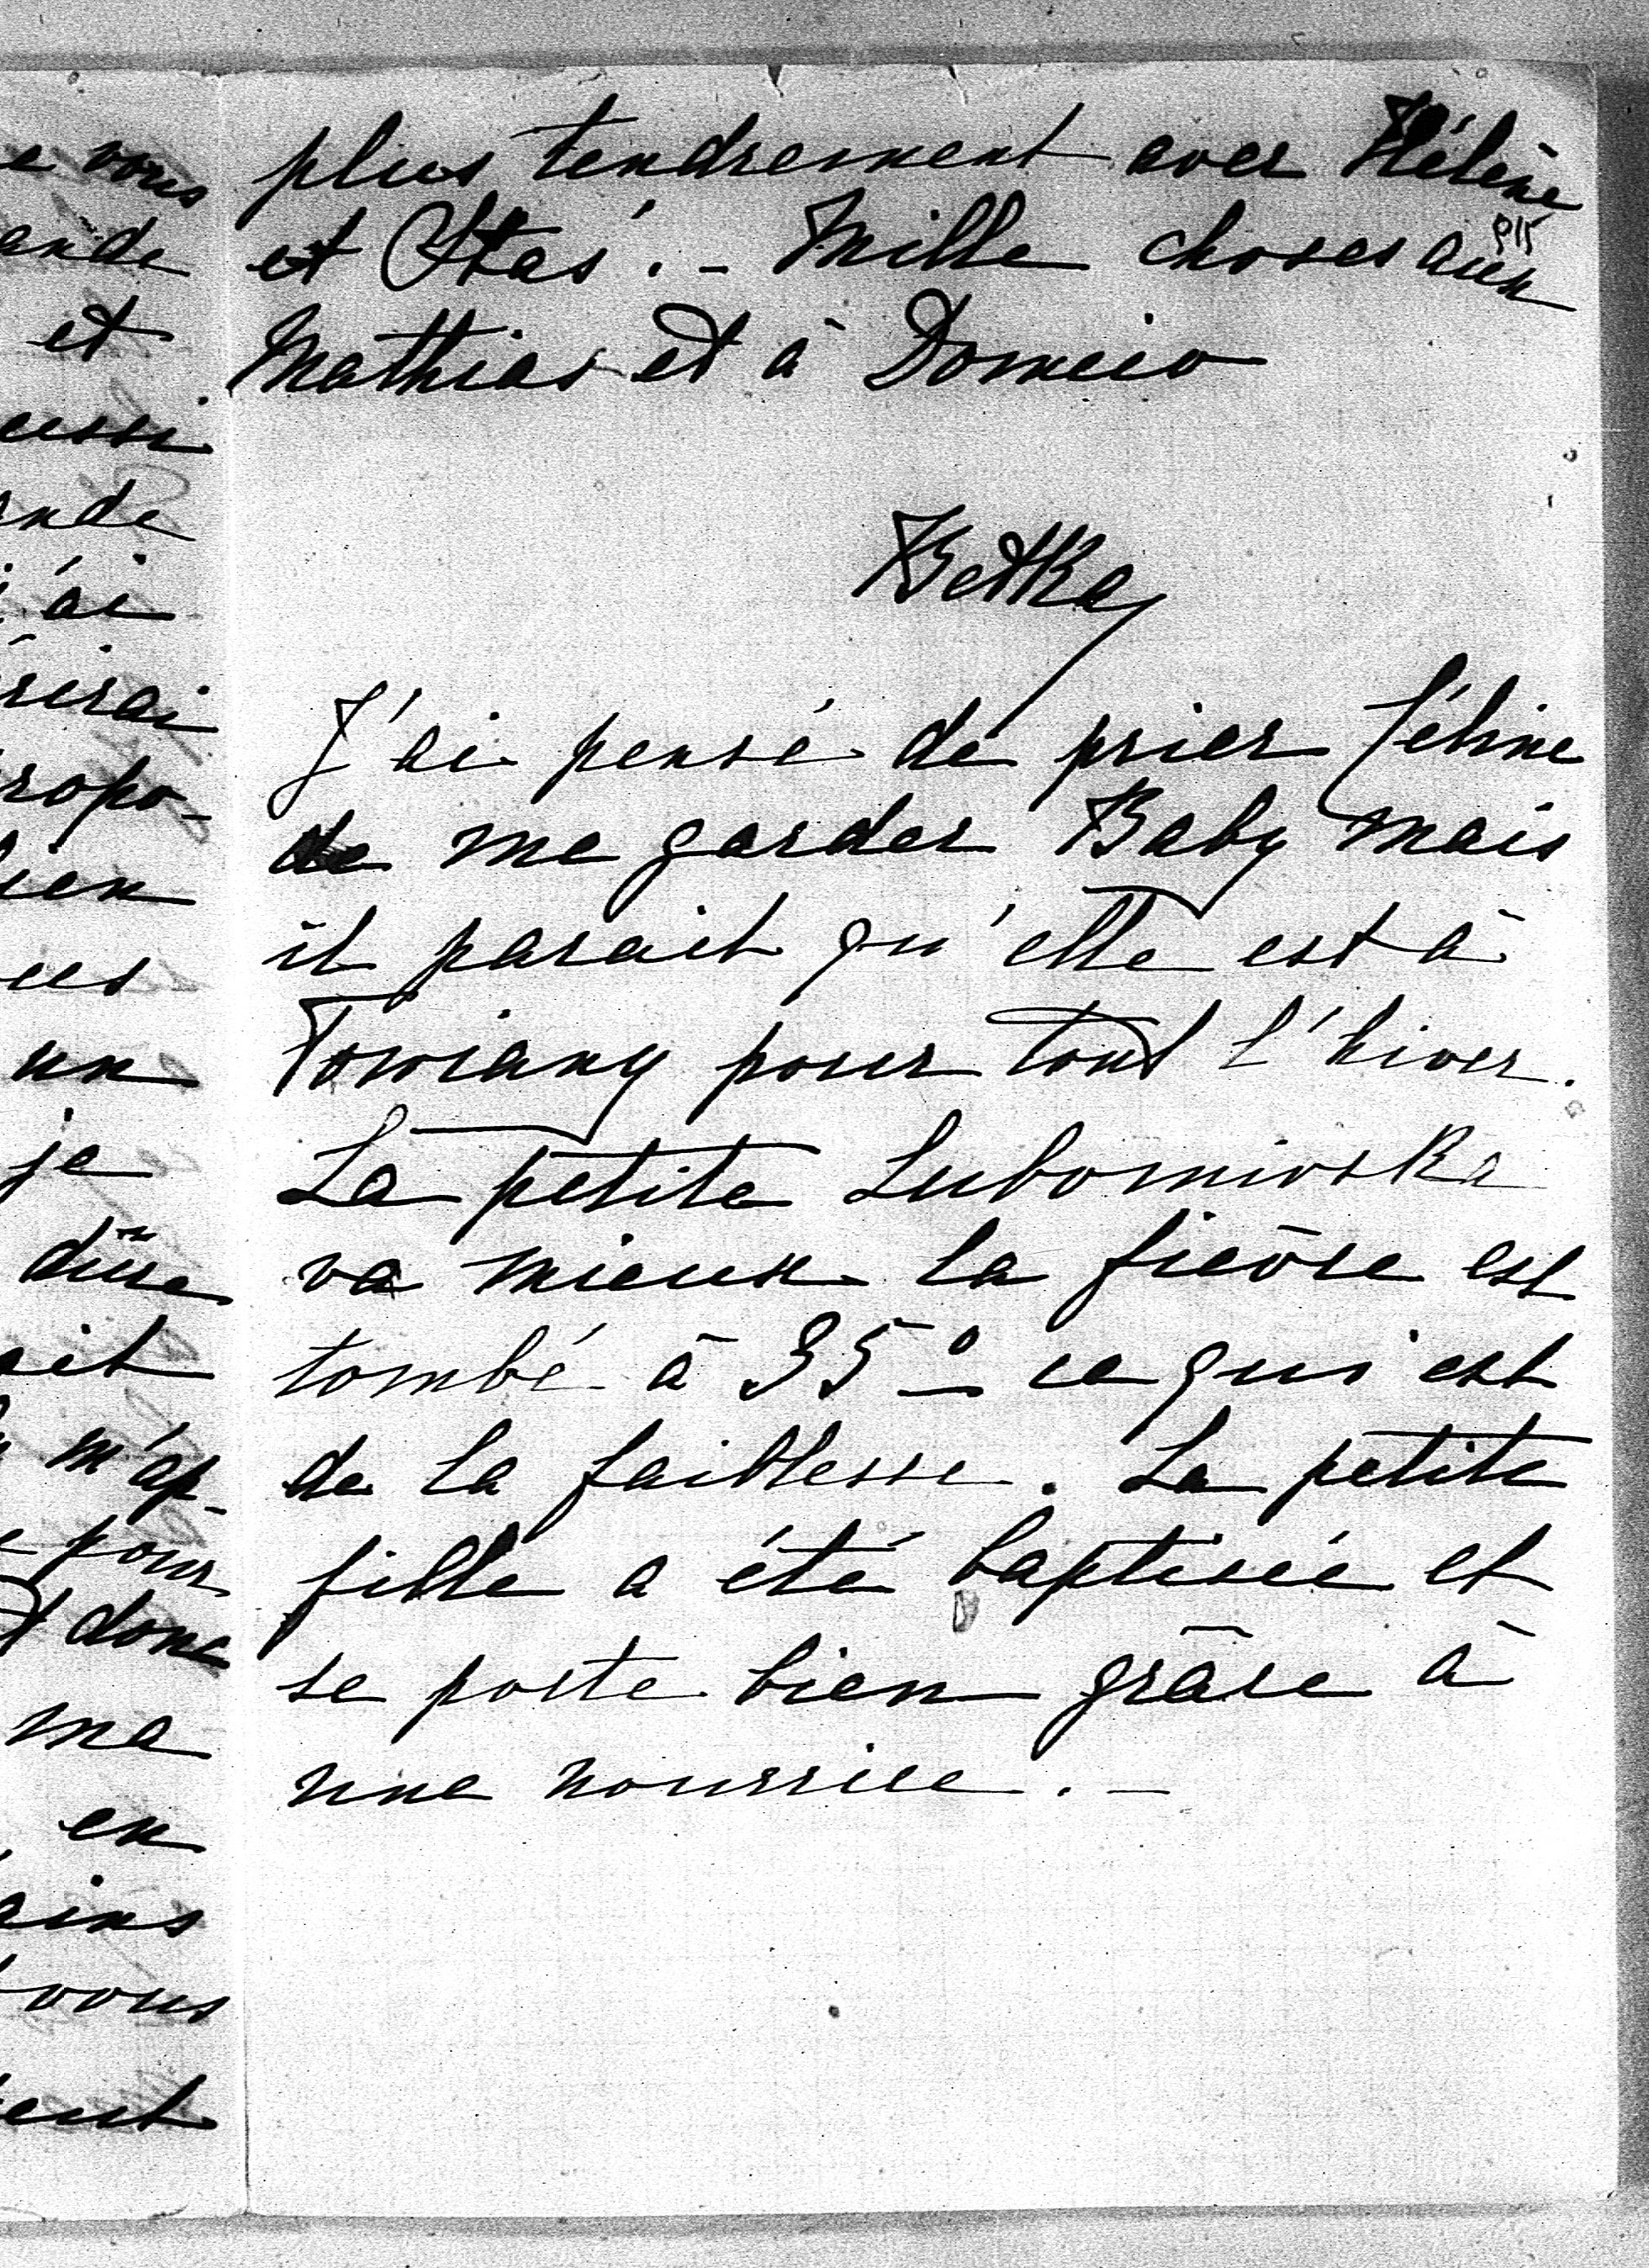 e vous
ande
et
ussi
nde
j'ai
rirai
ropo-
ien
us
un
je
dire
ait
m'ap-
pour
donc
ma
en
ains
vous
ent
plus tendrement avec Hélène
et Staś. - Mille choses aux
Mathias et à Domcio
Betka
J'ai pensé de prier Céline
de me garder Baby mais
il parait qu'elle est à
Towiany pour tout l'hiver.
La petite Lubomirska
va mieux la fièvre est
tombé à 35° ce qui est
de la faiblesse. La petite
fille a été baptisée et
se porte bien grâce à
une nourrice. -